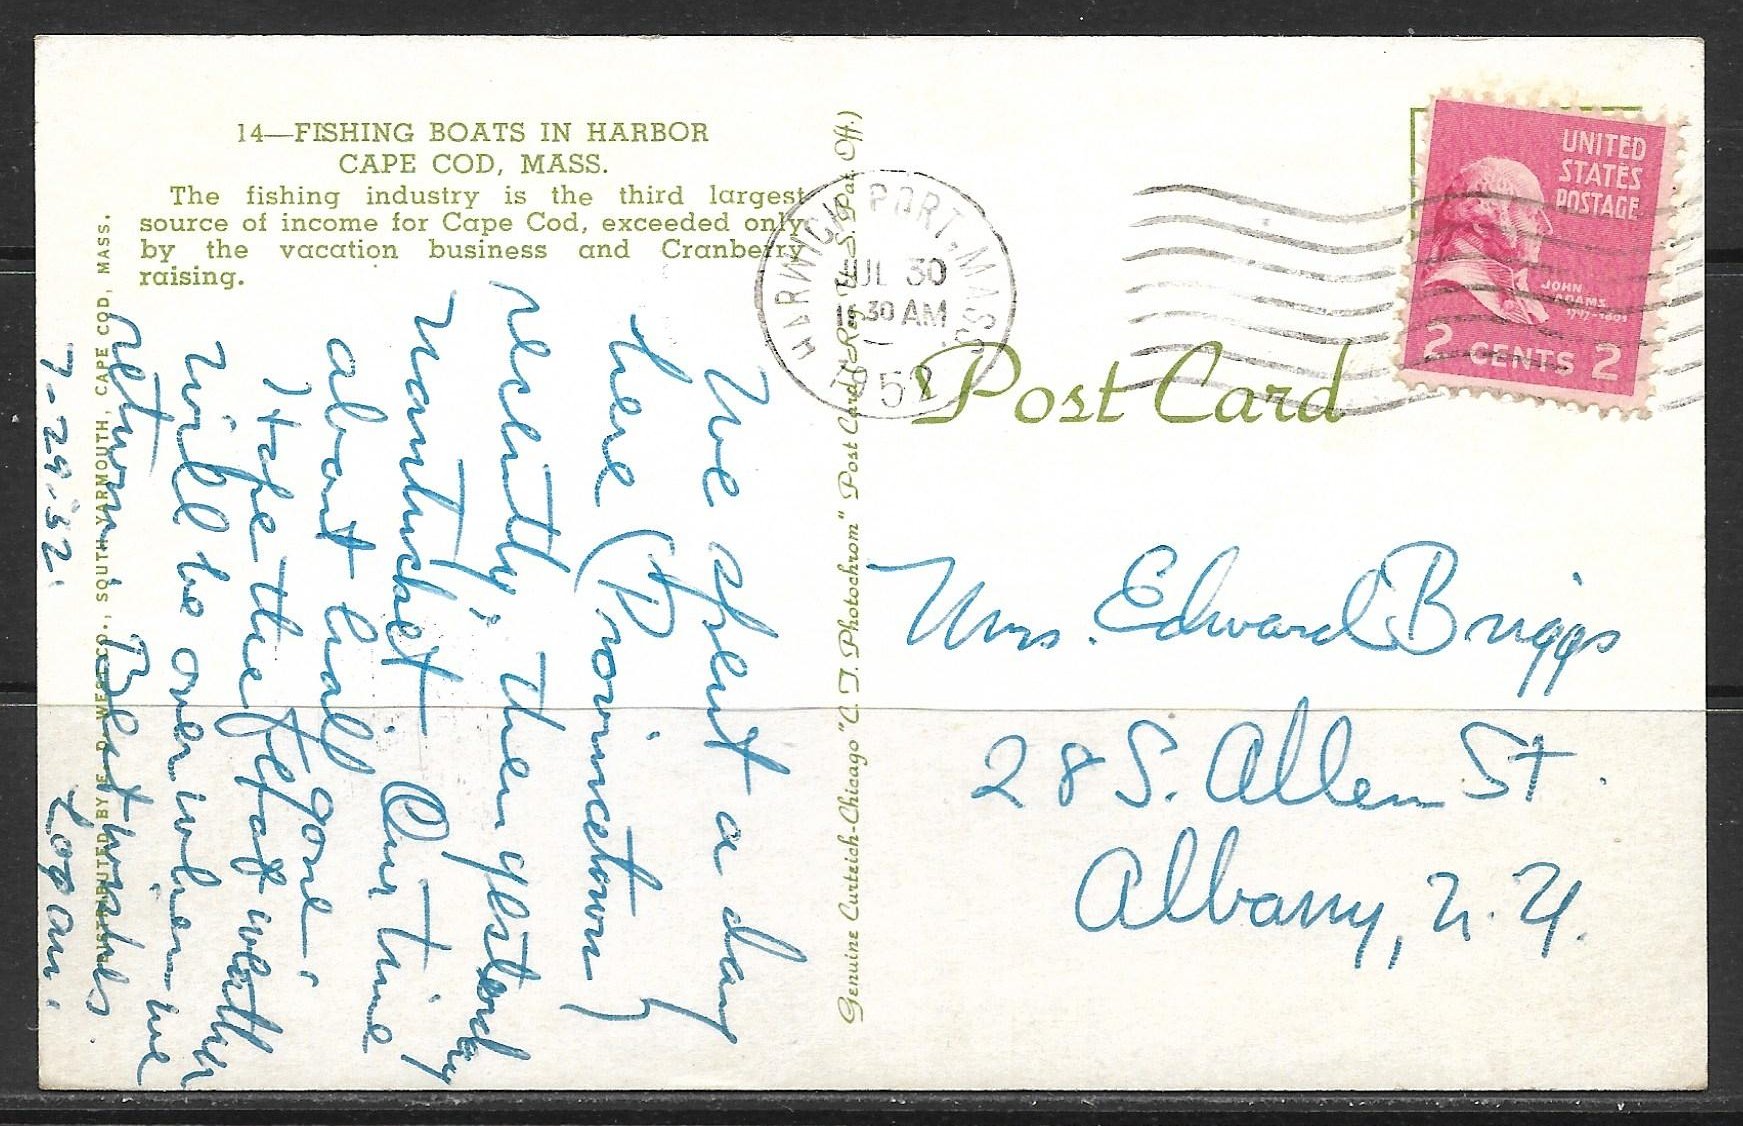 14—FISHING BOATS IN HARBOR
CAPE COD, MASS.
The fishing industry is the third largest
source of income for Cape Cod, exceeded only
by the vacation business and Cranberry
raising.
DISTRIBUTED BY E. D. WEST CO., SOUTH YARMOUTH, CAPE COD, MASS.
We spent a day
here (Provincetown)
recently, then yesterday
Nantucket. Our time
about half gone.
Hope the hot weather
will be over when we
return. Best wishes.
7-29-52. Logan.
Genuine Curteich-Chicago "C. T. Photochrom" Post Card (Reg. U. S. Pat. Off.)
HARWICH PORT, MASS.
JUL 30
11 30 AM
1952
UNITED
STATES
POSTAGE
JOHN
ADAMS
1797-1801
2 CENTS 2
Post Card
Mrs. Edward Briggs
28 S. Allen St.
Albany, N. Y.